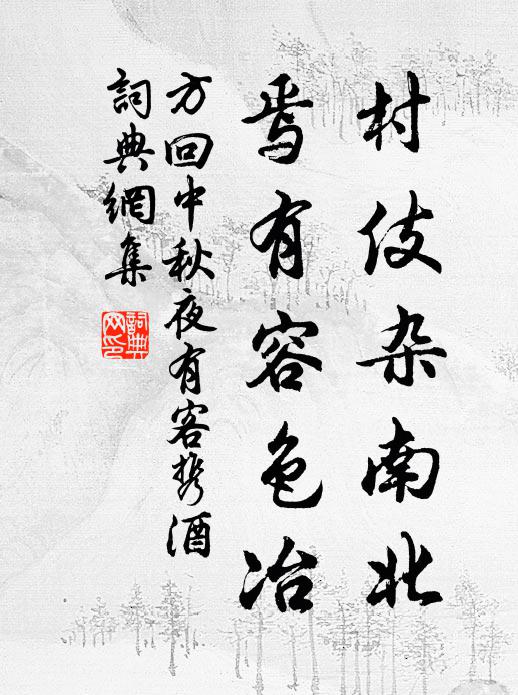 村伎杂南北
焉有容色冶
方回中秋夜有客携酒
詞典網集
詞典网印